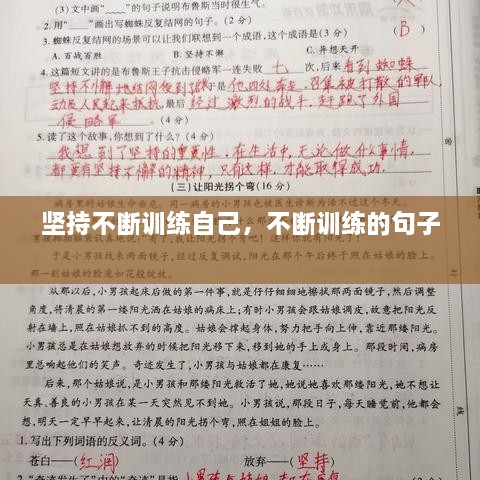 (3)文中"﹏﹏"的句子说明布鲁斯当时很生气。
2.用"——"画出写蜘蛛反复结网的句子。(2分)
3.蜘蛛反复结网的场景可以让我们联想到一个成语,这个成语是( B )
A.百战百胜 B.坚持不懈 C.异想天开
4.这篇短文讲的是布鲁斯王子抗击侵略军一连失败 七 次,后来 看到蜘蛛
坚持不懈地结网
他四处奔走,召集被打散的军队,
动员人民起来抵抗,最后 经过激烈的战斗,赶跑了外国
侵略军。(4分)
5.读了这个故事,你想到了什么?(4分)
我想到了坚持的重要性,在生活中,无论做什么事情,
都要有坚持不懈的精神,只有这样,才能取得成功。
(三)让阳光拐个弯(16分)
病房里的姑娘生命垂危。
坚持不断训练自己，不断训练的句子
于是小男孩找来两面镜子,经过反复调试,阳光在那个午后终于照在姑娘的
脸上。一刹那姑娘的脸庞如花般绽放。
从那以后,小男孩起床后做的第一件事,就是仔仔细细地擦拭那两面镜子,然后调整
角度,将清晨的第一缕阳光洒在姑娘的病床上;有时小男孩会跟姑娘调皮,故意把阳光反
射在墙上,照在姑娘抓不到的高度。姑娘会撑起身体,努力把手向上伸,靠近那缕阳光。
小男孩总是在姑娘想放弃的时候把阳光移下来,移到她的手上或身上。那段时间,病房
里总会响起他们的笑声。奇迹发生了,小男孩与姑娘都在康复……
后来,那个姑娘说,是小男孩和那缕阳光救活了她,她说她喜欢那缕阳光,她不想让
天真、善良的小男孩在某一天突然见不到她。小男孩说,那段日子,每天睡觉前,他都会
想,明天一定早早起来,让清晨的阳光拐个弯,照在姐姐的脸上。
1.写出下列词语的反义词。(4分)
苍白——(红润) 放弃——(坚持)
2."奇迹发生了"中的"奇迹"是指